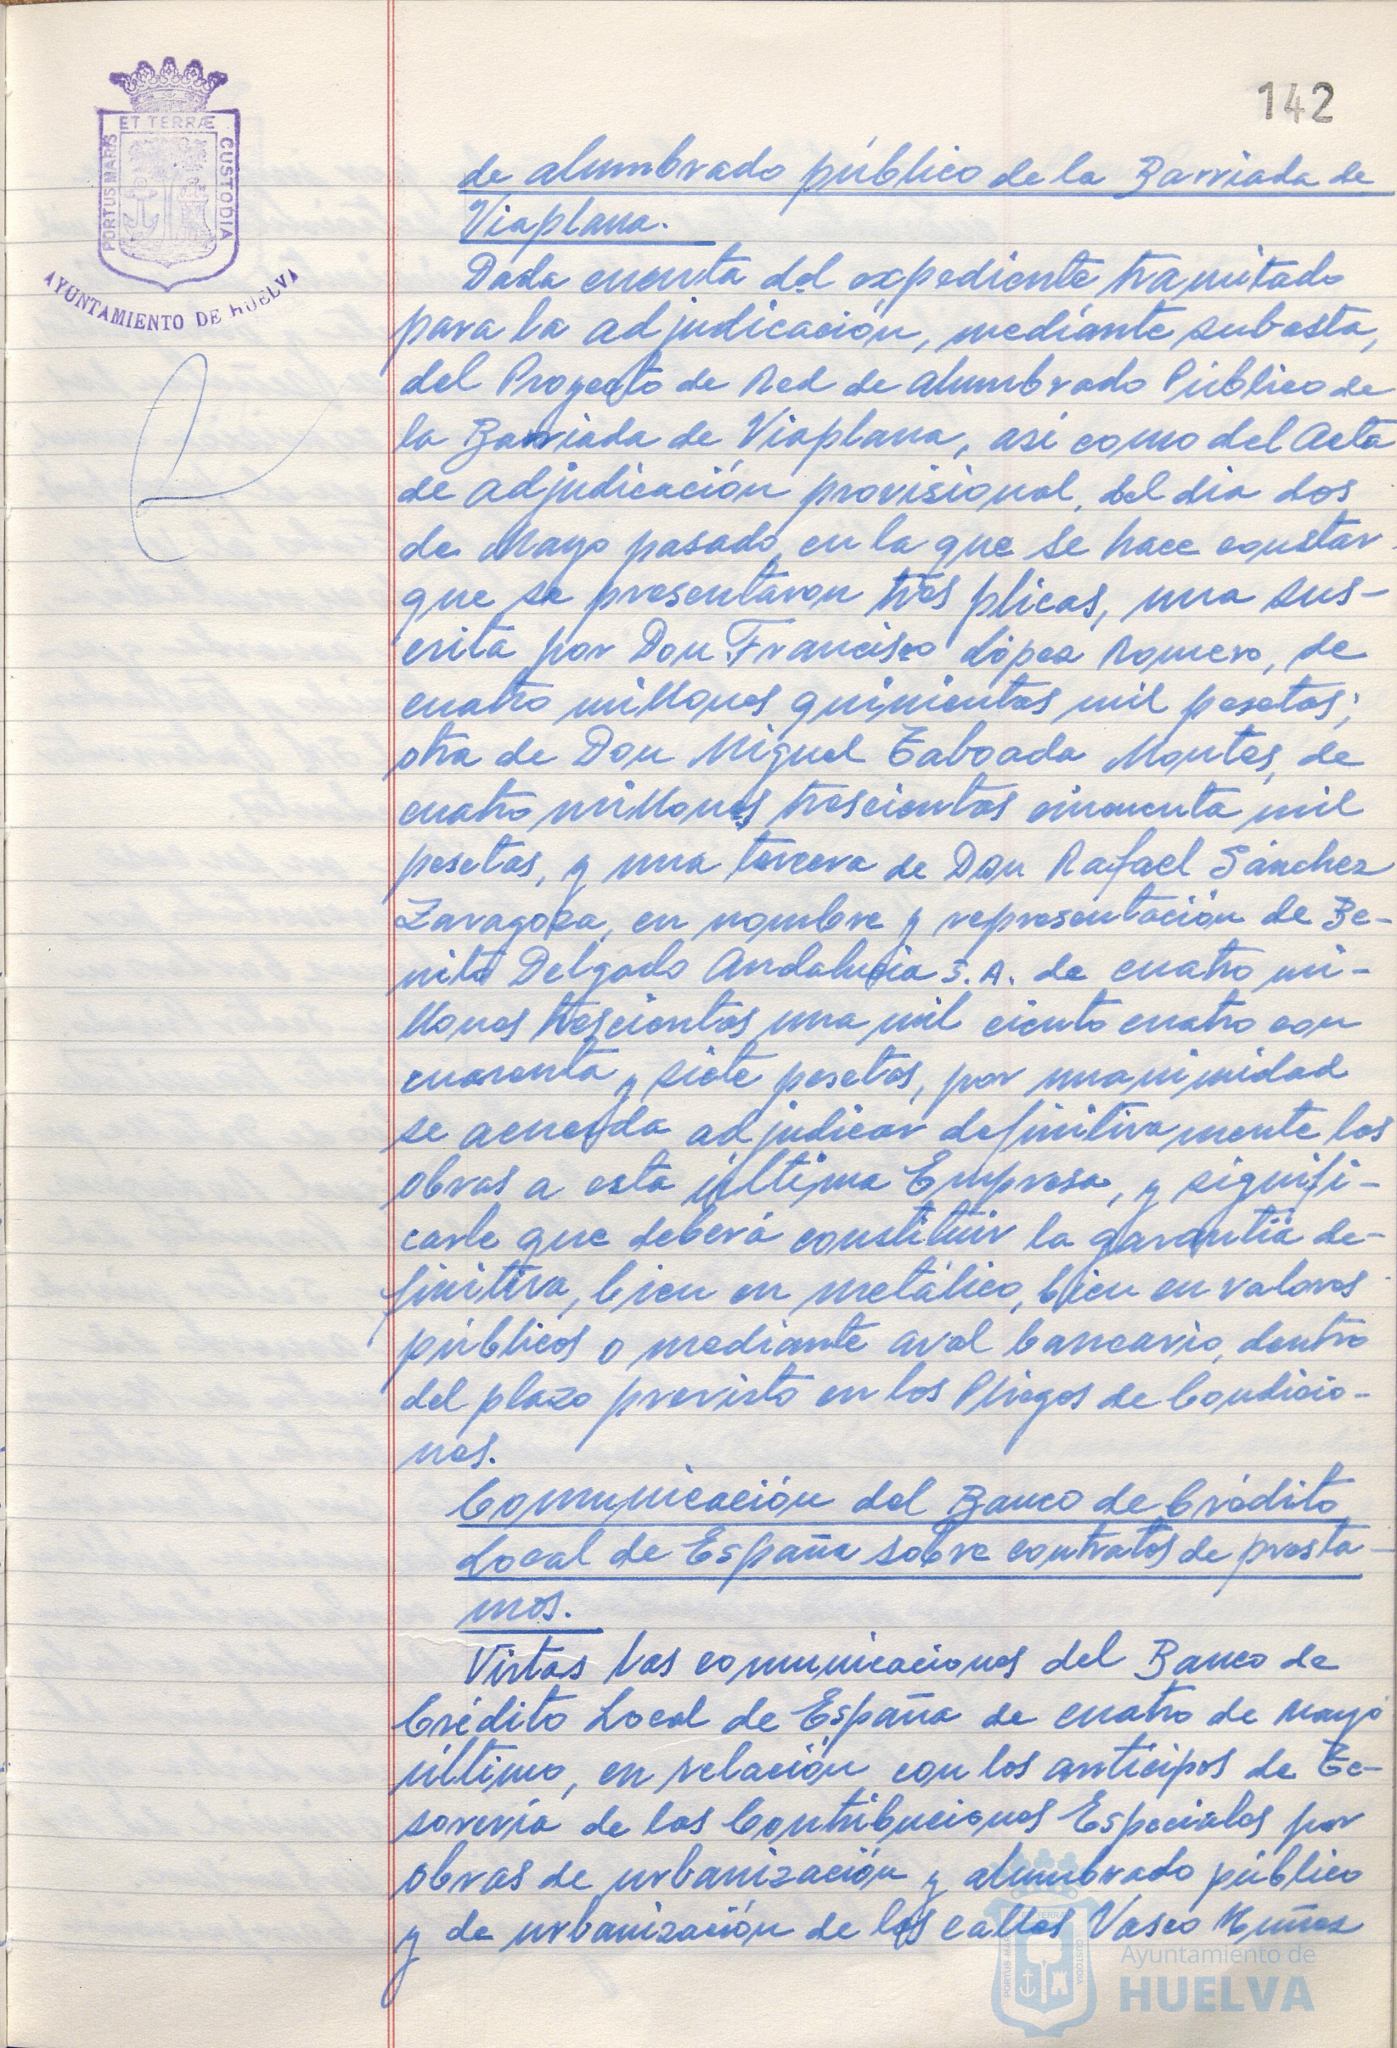 142
ET TERRÆ
PORTUS MARIS
CUSTODIA
AYUNTAMIENTO DE HUELVA
de alumbrado público de la Barriada de
Viaplana.
Dada cuenta del expediente tramitado
para la adjudicación, mediante subasta,
del Proyecto de Red de alumbrado Público de
la Barriada de Viaplana, así como del Acta
de adjudicación provisional, del dia dos
de Mayo pasado, en la que se hace constar
que se presentaron tres plicas, una sus-
crita por Don Francisco López Romero, de
cuatro millones quinientas mil pesetas;
otra de Don Miguel Taboada Montes, de
cuatro millones trescientas cincuenta mil
pesetas, y una tercera de Don Rafael Sánchez
Zaragoza, en nombre y representación de Be-
nito Delgado Andalucia S.A. de cuatro mi-
llones trescientas una mil ciento cuatro con
cuarenta y siete pesetas, por unanimidad
se acuerda adjudicar definitivamente las
obras a esta última Empresa, y signifi-
carle que deberá constituir la garantia de-
finitiva, bien en metálico, bien en valores
públicos o mediante aval bancario, dentro
del plazo previsto en los Pliegos de Condicio-
nes.
Comunicación del Banco de Crédito
Local de España sobre contratos de presta-
mos.
Vistas las comunicaciones del Banco de
Crédito Local de España de cuatro de Mayo
último, en relación con los anticipos de Te-
sorería de las Contribuciones Especiales por
obras de urbanización y alumbrado público
y de urbanización de las calles Vasco Nuñez
Ayuntamiento de
HUELVA